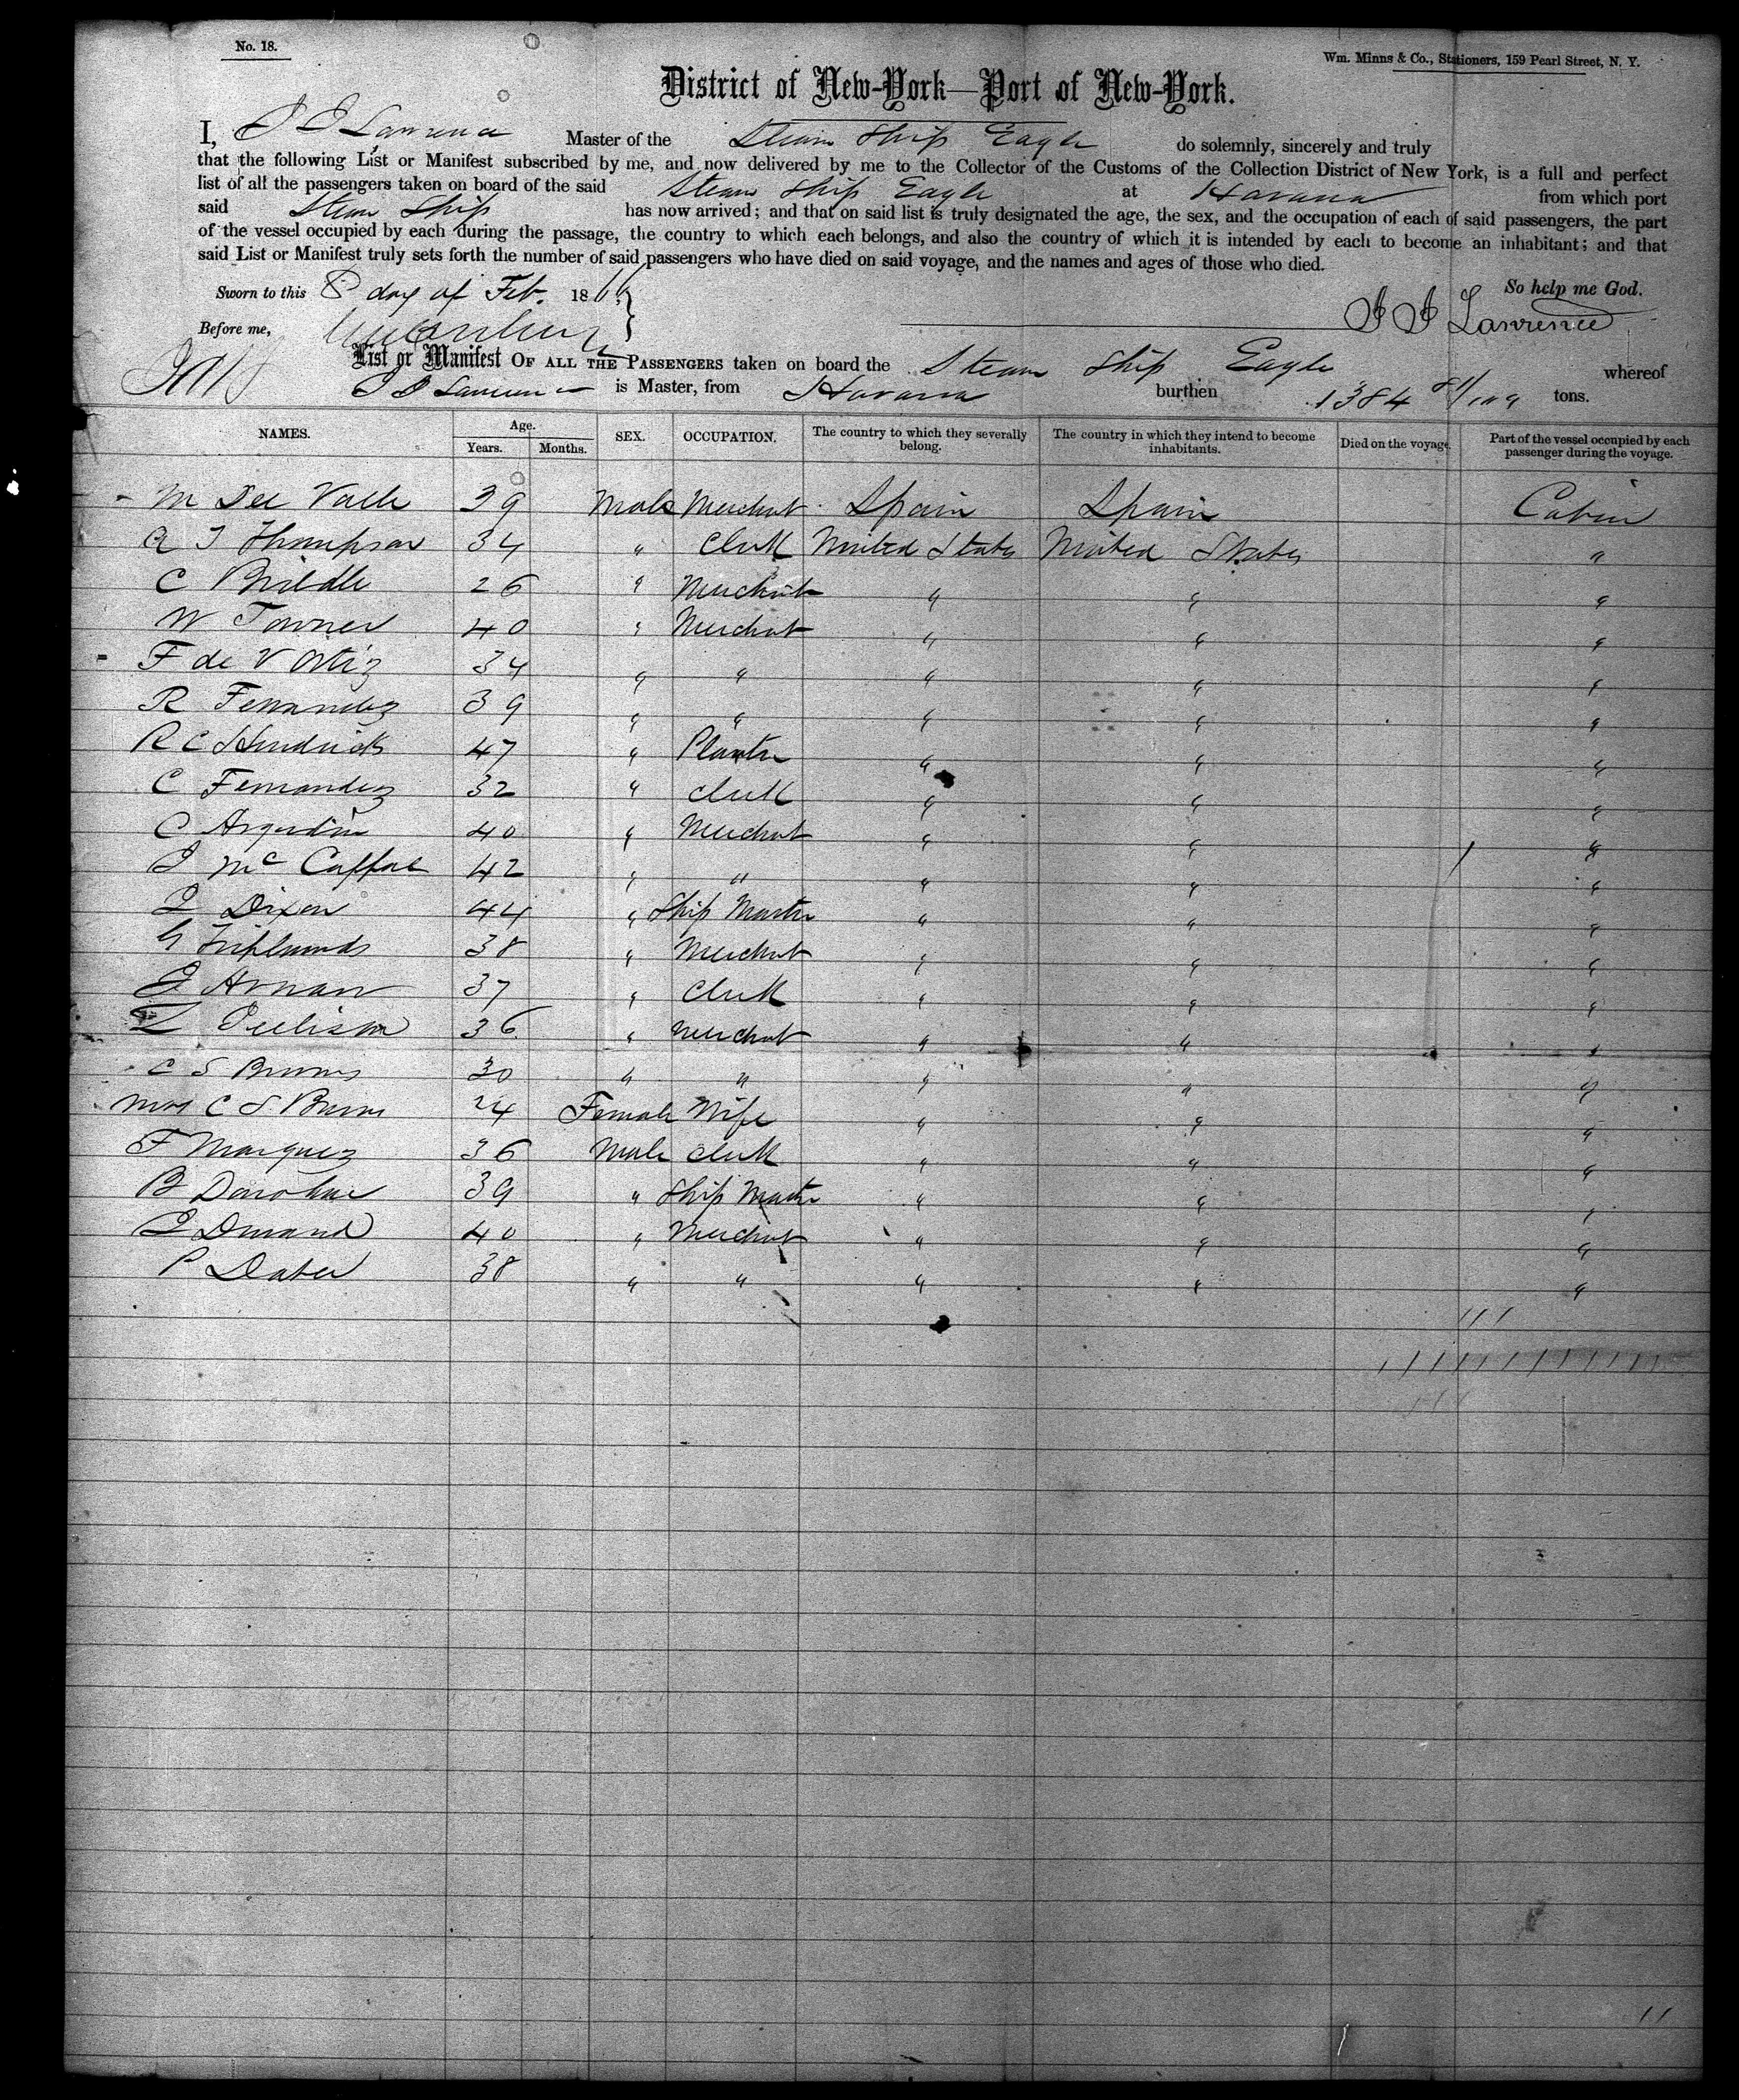 No. 18.
Wm. Minns & Co., Stationers, 159 Pearl Street, N. Y.
District of New-York—Port of New-York.
I, I I Lawrence Master of the Steam Ship Eagle do solemnly, sincerely and truly
that the following List or Manifest subscribed by me, and now delivered by me to the Collector of the Customs of the Collection District of New York, is a full and perfect
list of all the passengers taken on board of the said Steam Ship Eagle at Havana from which port
said Steam Ship has now arrived; and that on said list is truly designated the age, the sex, and the occupation of each of said passengers, the part
of the vessel occupied by each during the passage, the country to which each belongs, and also the country of which it is intended by each to become an inhabitant; and that
said List or Manifest truly sets forth the number of said passengers who have died on said voyage, and the names and ages of those who died.
Sworn to this 8 day of Feb. 1866 So help me God.
Before me, I I Lawrence
List or Manifest OF ALL THE PASSENGERS taken on board the Steam Ship Eagle whereof
I I Lawrence is Master, from Havana burthen 1384 tons.
NAMES. Age. Years. Months. SEX. OCCUPATION. The country to which they severally belong. The country in which they intend to become inhabitants. Died on the voyage. Part of the vessel occupied by each passenger during the voyage.
M Del Valle 39 Male Merchant Spain Spain Cabin
A T Thompson 34 " Clerk United States United States "
C Briddle 26 " Merchant " " "
W Towner 40 " Merchant " " "
F de V Ortiz 34 " " " " "
R Fernandez 39 " " " " "
R C Hendricks 47 " Planter " " "
C Fernandez 32 " Clerk " " "
C Argudin 40 " Merchant " " "
J McCaffrae 42 " " " " "
J Dixon 44 " Ship Master " " "
G 38 " Merchant " " "
J Arnau 37 " Clerk " " "
36 " Merchant " " "
C S Burns 30 " " " " "
Mrs C S Burns 24 Female Wife " " "
F Marquez 36 Male Clerk " " "
B Donohue 39 " Ship Master " " "
J Durand 40 " Merchant " " "
P Dater 38 " " " " "